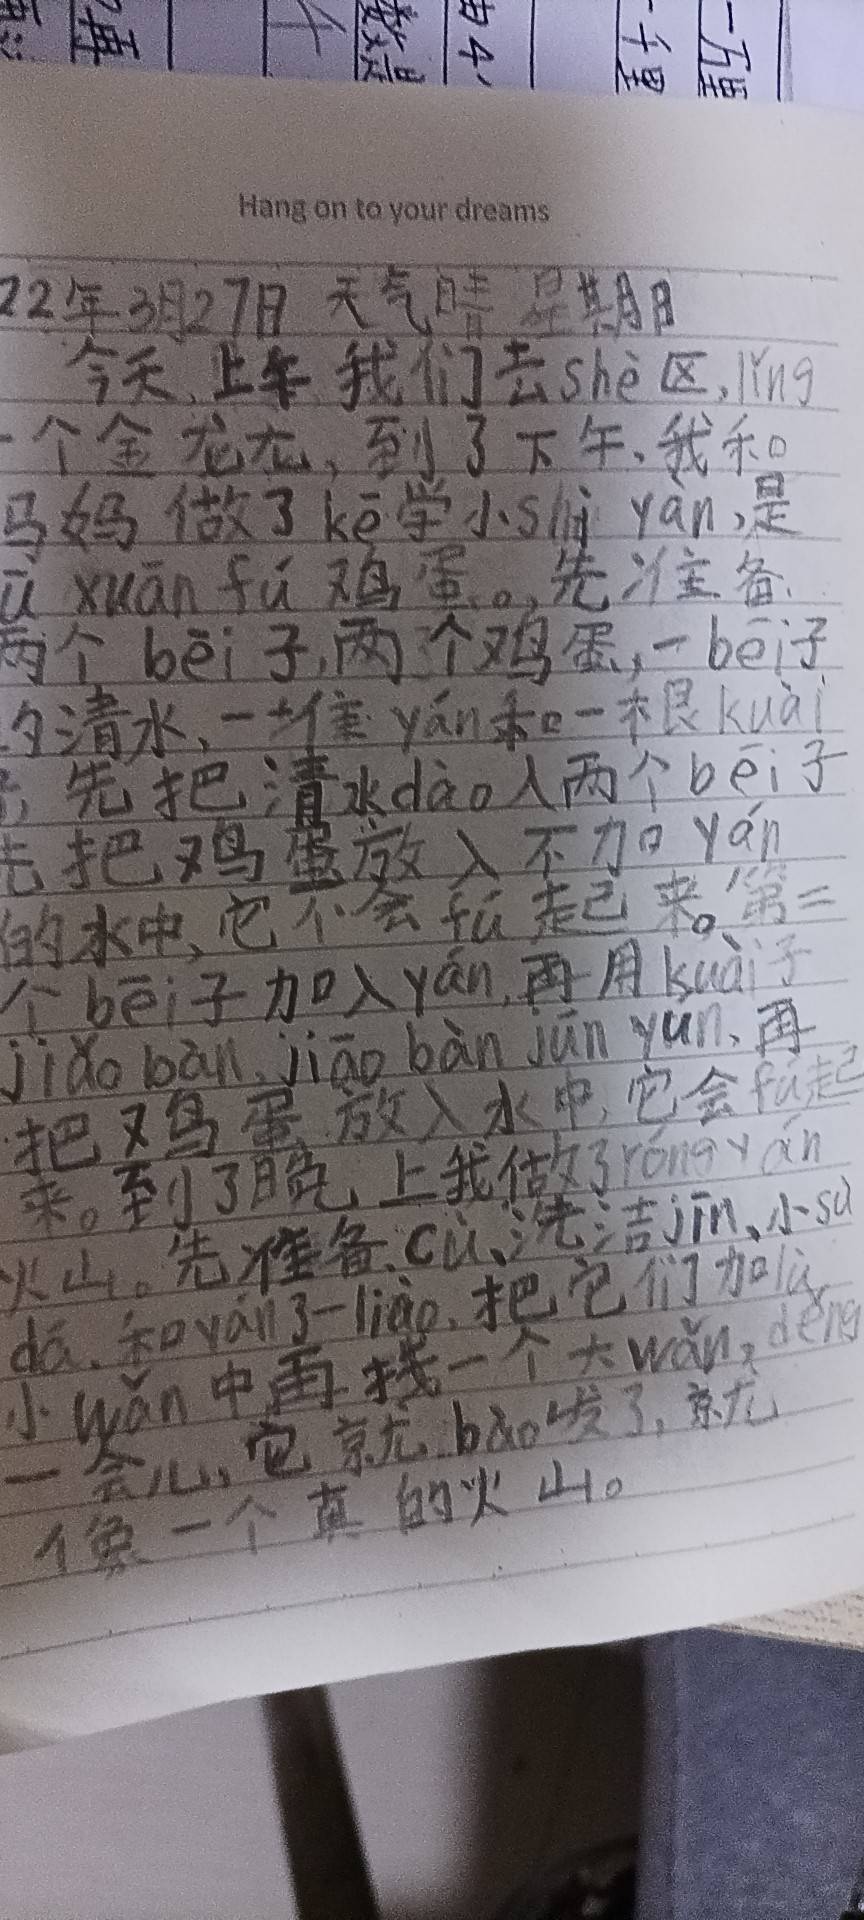 一万里
一千里
由小
数据
个
再
Hang on to your dreams
22年3月27日 天气晴 星期日
今天、上午 我们去shè区,lǐng
一个金龙龙,到了下午、我和
妈妈做了kē学小shí yàn,是
ǔ xuān fú 鸡蛋。,先准备、
两个bēi子,两个鸡蛋,一bēi子
的清水、一堆yán和一根kuài
先把清水dào入两个bēi子
先把鸡蛋放入不加yán
的水中、它不会fú起来。第二
个bēi子加入yán,再用kuài子
jiǎo bàn、jiāo bàn jūn yun、再
把鸡蛋放入水中,它会fú起
来。到了晚上我做了róng yán
火山。先准备cù、洗洁jīn、小sū
dá、和yán 3-liào、把它们加lù
小wǎn中再找一个大wǎn,děng
一会儿、它就bào发了,就
像一个真的火山。